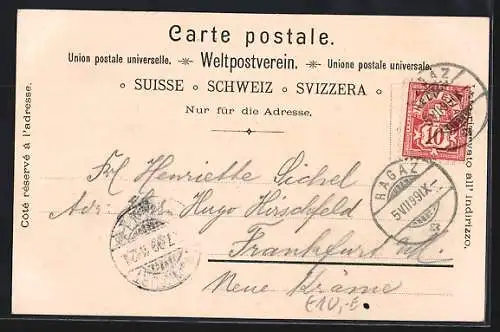 Carte postale.
Union postale universelle. Weltpostverein. Unione postale universale.
SUISSE SCHWEIZ SVIZZERA
Nur für die Adresse.
Côté réservé à l'adresse.
all' indirizzo.
HELVETIA
10
RAGAZ
RAGAZ
5 VII 99 IX
Frl Henriette Sichel
Adr. Hugo Hirschfeld
Frankfurt a/M.
Neue Kräme
€10,-